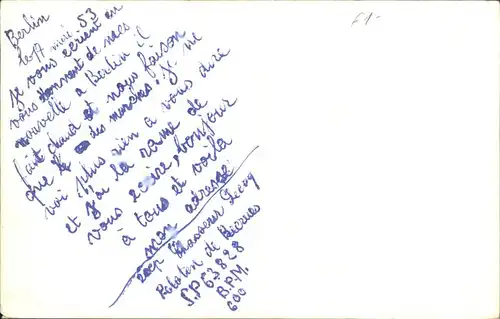 £1-
Berlin
le 17 mai. 53
je vous écrient en
vous donnent de mes
nouvelle a Berlin il
fait chaud et nous faison
que le des marches. je ne
voi plus rien a vous dire
et j'ai la rame de
vous ecire, bonjour
à tous et voila
mon adresse
Chasseur
Peloton de
S.P 63828
B.P.M.
600